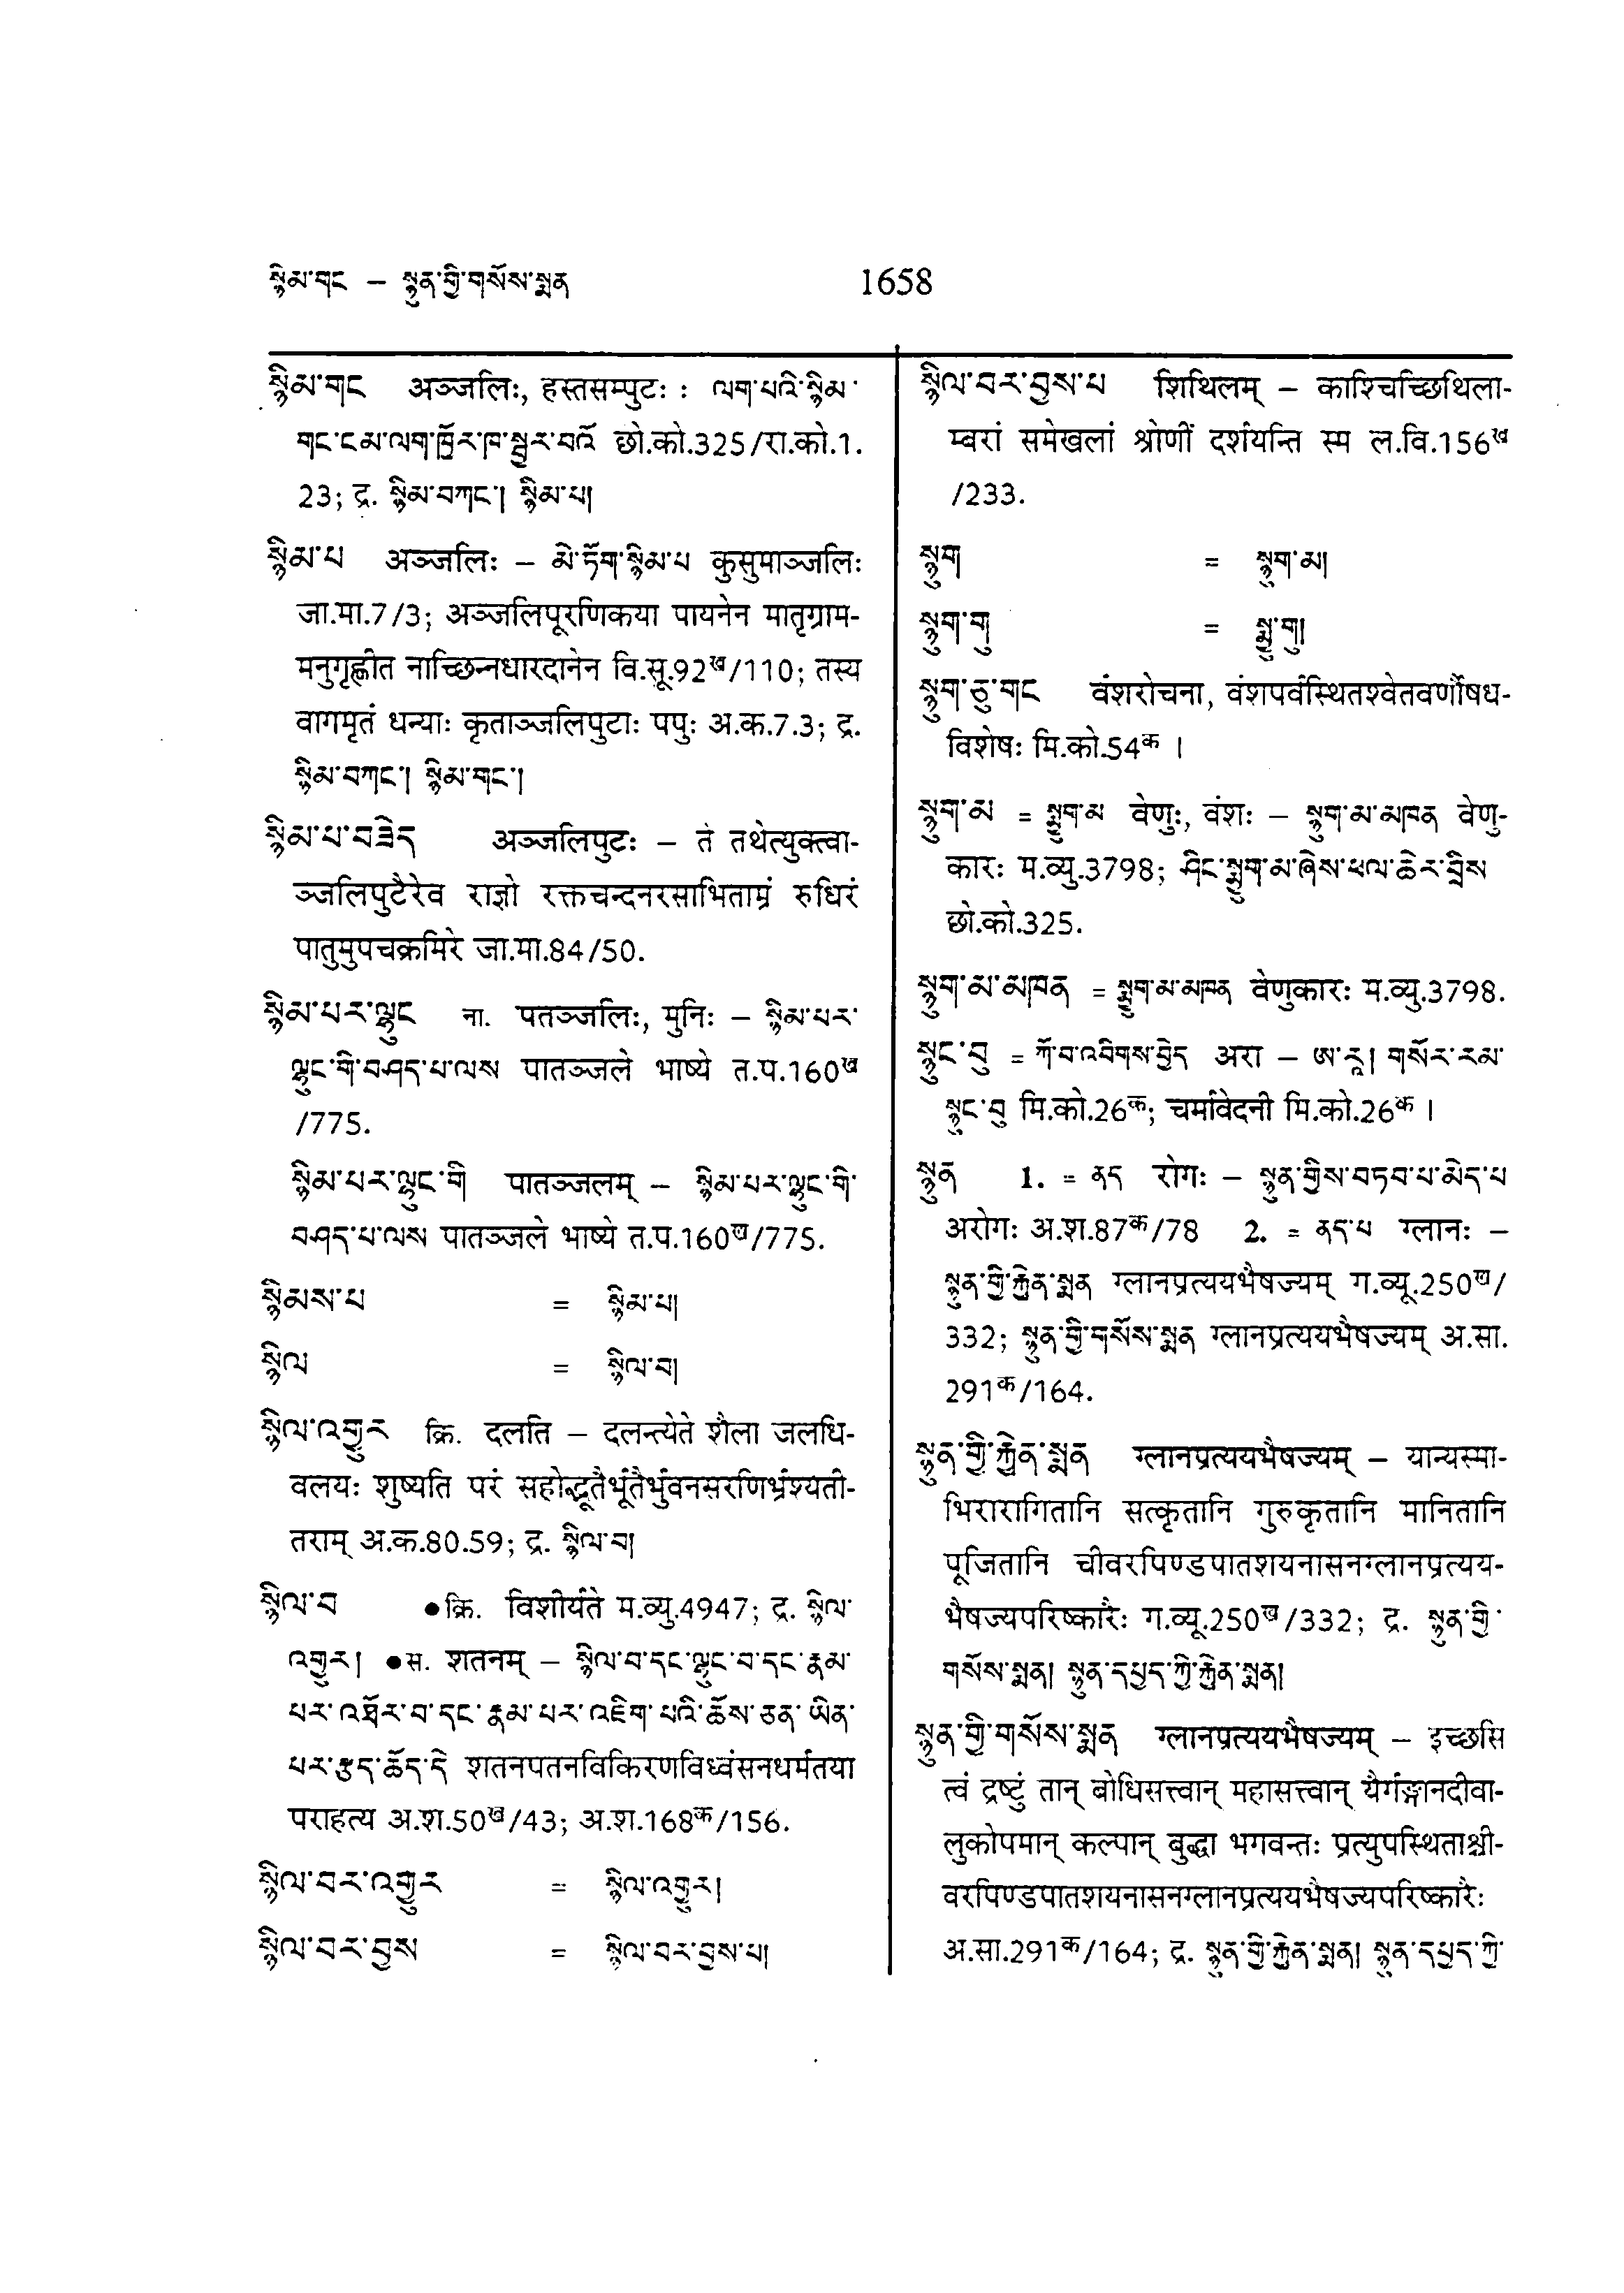 སྙིམ་གང – སྙུན་གྱི་གསོས་སྨན 1658
སྙིམ་གང अञ्जलिः, हस्तसम्पुटः : ལག་པའི་སྙིམ་
གང་ངམ་ལག་ཁྲོར་ཁ་སྦྱར་བའོ छो.को.325/रा.को.1.
23; द्र. སྙིམ་བཀང་། སྙིམ་པ།
སྙིམ་པ अञ्जलिः – མེ་ཏོག་སྙིམ་པ कुसुमाञ्जलिः
जा.मा.7/3; अञ्जलिपूरणिकया पायनेन मातृग्राम-
मनुगृह्णीत नाच्छिन्नधारदानेन वि.सू.92ख/110; तस्य
वागमृतं धन्याः कृताञ्जलिपुटाः पपुः अ.क.7.3; द्र.
སྙིམ་བཀང་། སྙིམ་གང་།
སྙིམ་པ་བཟེད अञ्जलिपुटः – ते तथेत्युक्त्वा-
ञ्जलिपुटैरेव राज्ञो रक्तचन्दनरसाभिताम्रं रुधिरं
पातुमुपचक्रमिरे जा.मा.84/50.
སྙིམ་པར་ལྷུང ना. पतञ्जलिः, मुनिः – སྙིམ་པར་
ལྷུང་གི་བཤད་པ་ལས पातञ्जले भाष्ये त.प.160ख
/775.
སྙིམ་པར་ལྷུང་གི पातञ्जलम् – སྙིམ་པར་ལྷུང་གི་
བཤད་པ་ལས पातञ्जले भाष्ये त.प.160ख/775.
སྙིམས་པ = སྙིམ་པ།
སྙིལ = སྙིལ་བ།
སྙིལ་འགྱུར क्रि. दलति – दलन्त्येते शैला जलधि-
वलयः शुष्यति परं सहोद्भूतैर्भूतैर्भुवनसरणिर्भ्रश्यती-
तराम् अ.क.80.59; द्र. སྙིལ་བ།
སྙིལ་བ ●क्रि. विशीर्यते म.व्यु.4947; द्र. སྙིལ་
འགྱུར། ●स. शतनम् – སྙིལ་བ་དང་ལྷུང་བ་དང་རྣམ་
པར་འཐོར་བ་དང་རྣམ་པར་འཇིག་པའི་ཆོས་ཅན་ཡིན་
པར་རྩད་ཆོད་དེ शतनपतनविकिरणविध्वंसनधर्मतया
पराहत्य अ.श.50ख/43; अ.श.168क/156.
སྙིལ་བར་འགྱུར = སྙིལ་འགྱུར།
སྙིལ་བར་བྱས = སྙིལ་བར་བྱས་པ།
སྙིལ་བར་བྱས་པ शिथिलम् – काश्चिच्छिथिला-
म्बरां समेखलां श्रोणीं दर्शयन्ति स्म ल.वि.156ख
/233.
སྙུག = སྙུག་མ།
སྙུག་གུ = སྨྱུ་གུ།
སྙུག་ཅུ་གང वंशरोचना, वंशपर्वस्थितश्वेतवर्णौषध-
विशेषः मि.को.54क ।
སྙུག་མ = སྨྱུག་མ वेणुः, वंशः – སྙུག་མ་མཁན वेणु-
कारः म.व्यु.3798; ཤིང་སྨྱུག་མ་ཞེས་ཕལ་ཆེར་བྲིས
छो.को.325.
སྙུག་མ་མཁན = སྨྱུག་མ་མཁན वेणुकारः म.व्यु.3798.
སྙུང་བུ = ཀོ་བ་འབིགས་བྱེད अरा – ཨ་རཱ། གསོར་རམ་
སྙུང་བུ मि.को.26क; चर्मावेदनी मि.को.26क ।
སྙུན 1. = ནད रोगः – སྙུན་གྱིས་བཏབ་པ་མེད་པ
अरोगः अ.श.87क/78 2. = ནད་པ ग्लानः –
སྙུན་གྱི་རྐྱེན་སྨན ग्लानप्रत्ययभैषज्यम् ग.व्यू.250ख/
332; སྙུན་གྱི་གསོས་སྨན ग्लानप्रत्ययभैषज्यम् अ.सा.
291क/164.
སྙུན་གྱི་རྐྱེན་སྨན ग्लानप्रत्ययभैषज्यम् – यान्यस्मा-
भिरारागितानि सत्कृतानि गुरुकृतानि मानितानि
पूजितानि चीवरपिण्डपातशयनासनग्लानप्रत्यय-
भैषज्यपरिष्कारैः ग.व्यू.250ख/332; द्र. སྙུན་གྱི་
གསོས་སྨན། སྙུན་དཔྱད་ཀྱི་རྐྱེན་སྨན།
སྙུན་གྱི་གསོས་སྨན ग्लानप्रत्ययभैषज्यम् – इच्छसि
त्वं द्रष्टुं तान् बोधिसत्त्वान् महासत्त्वान् यैर्गङ्गानदीवा-
लुकोपमान् कल्पान् बुद्धा भगवन्तः प्रत्युपस्थिताश्ची-
वरपिण्डपातशयनासनग्लानप्रत्ययभैषज्यपरिष्कारैः
अ.सा.291क/164; द्र. སྙུན་གྱི་རྐྱེན་སྨན། སྙུན་དཔྱད་ཀྱི་